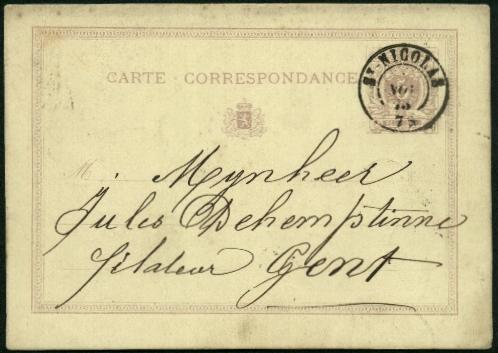 CARTE CORRESPONDANCE
ST NICOLAS
NOV
75
M
Mynheer
Jules Dehemptinne
filateur Gent